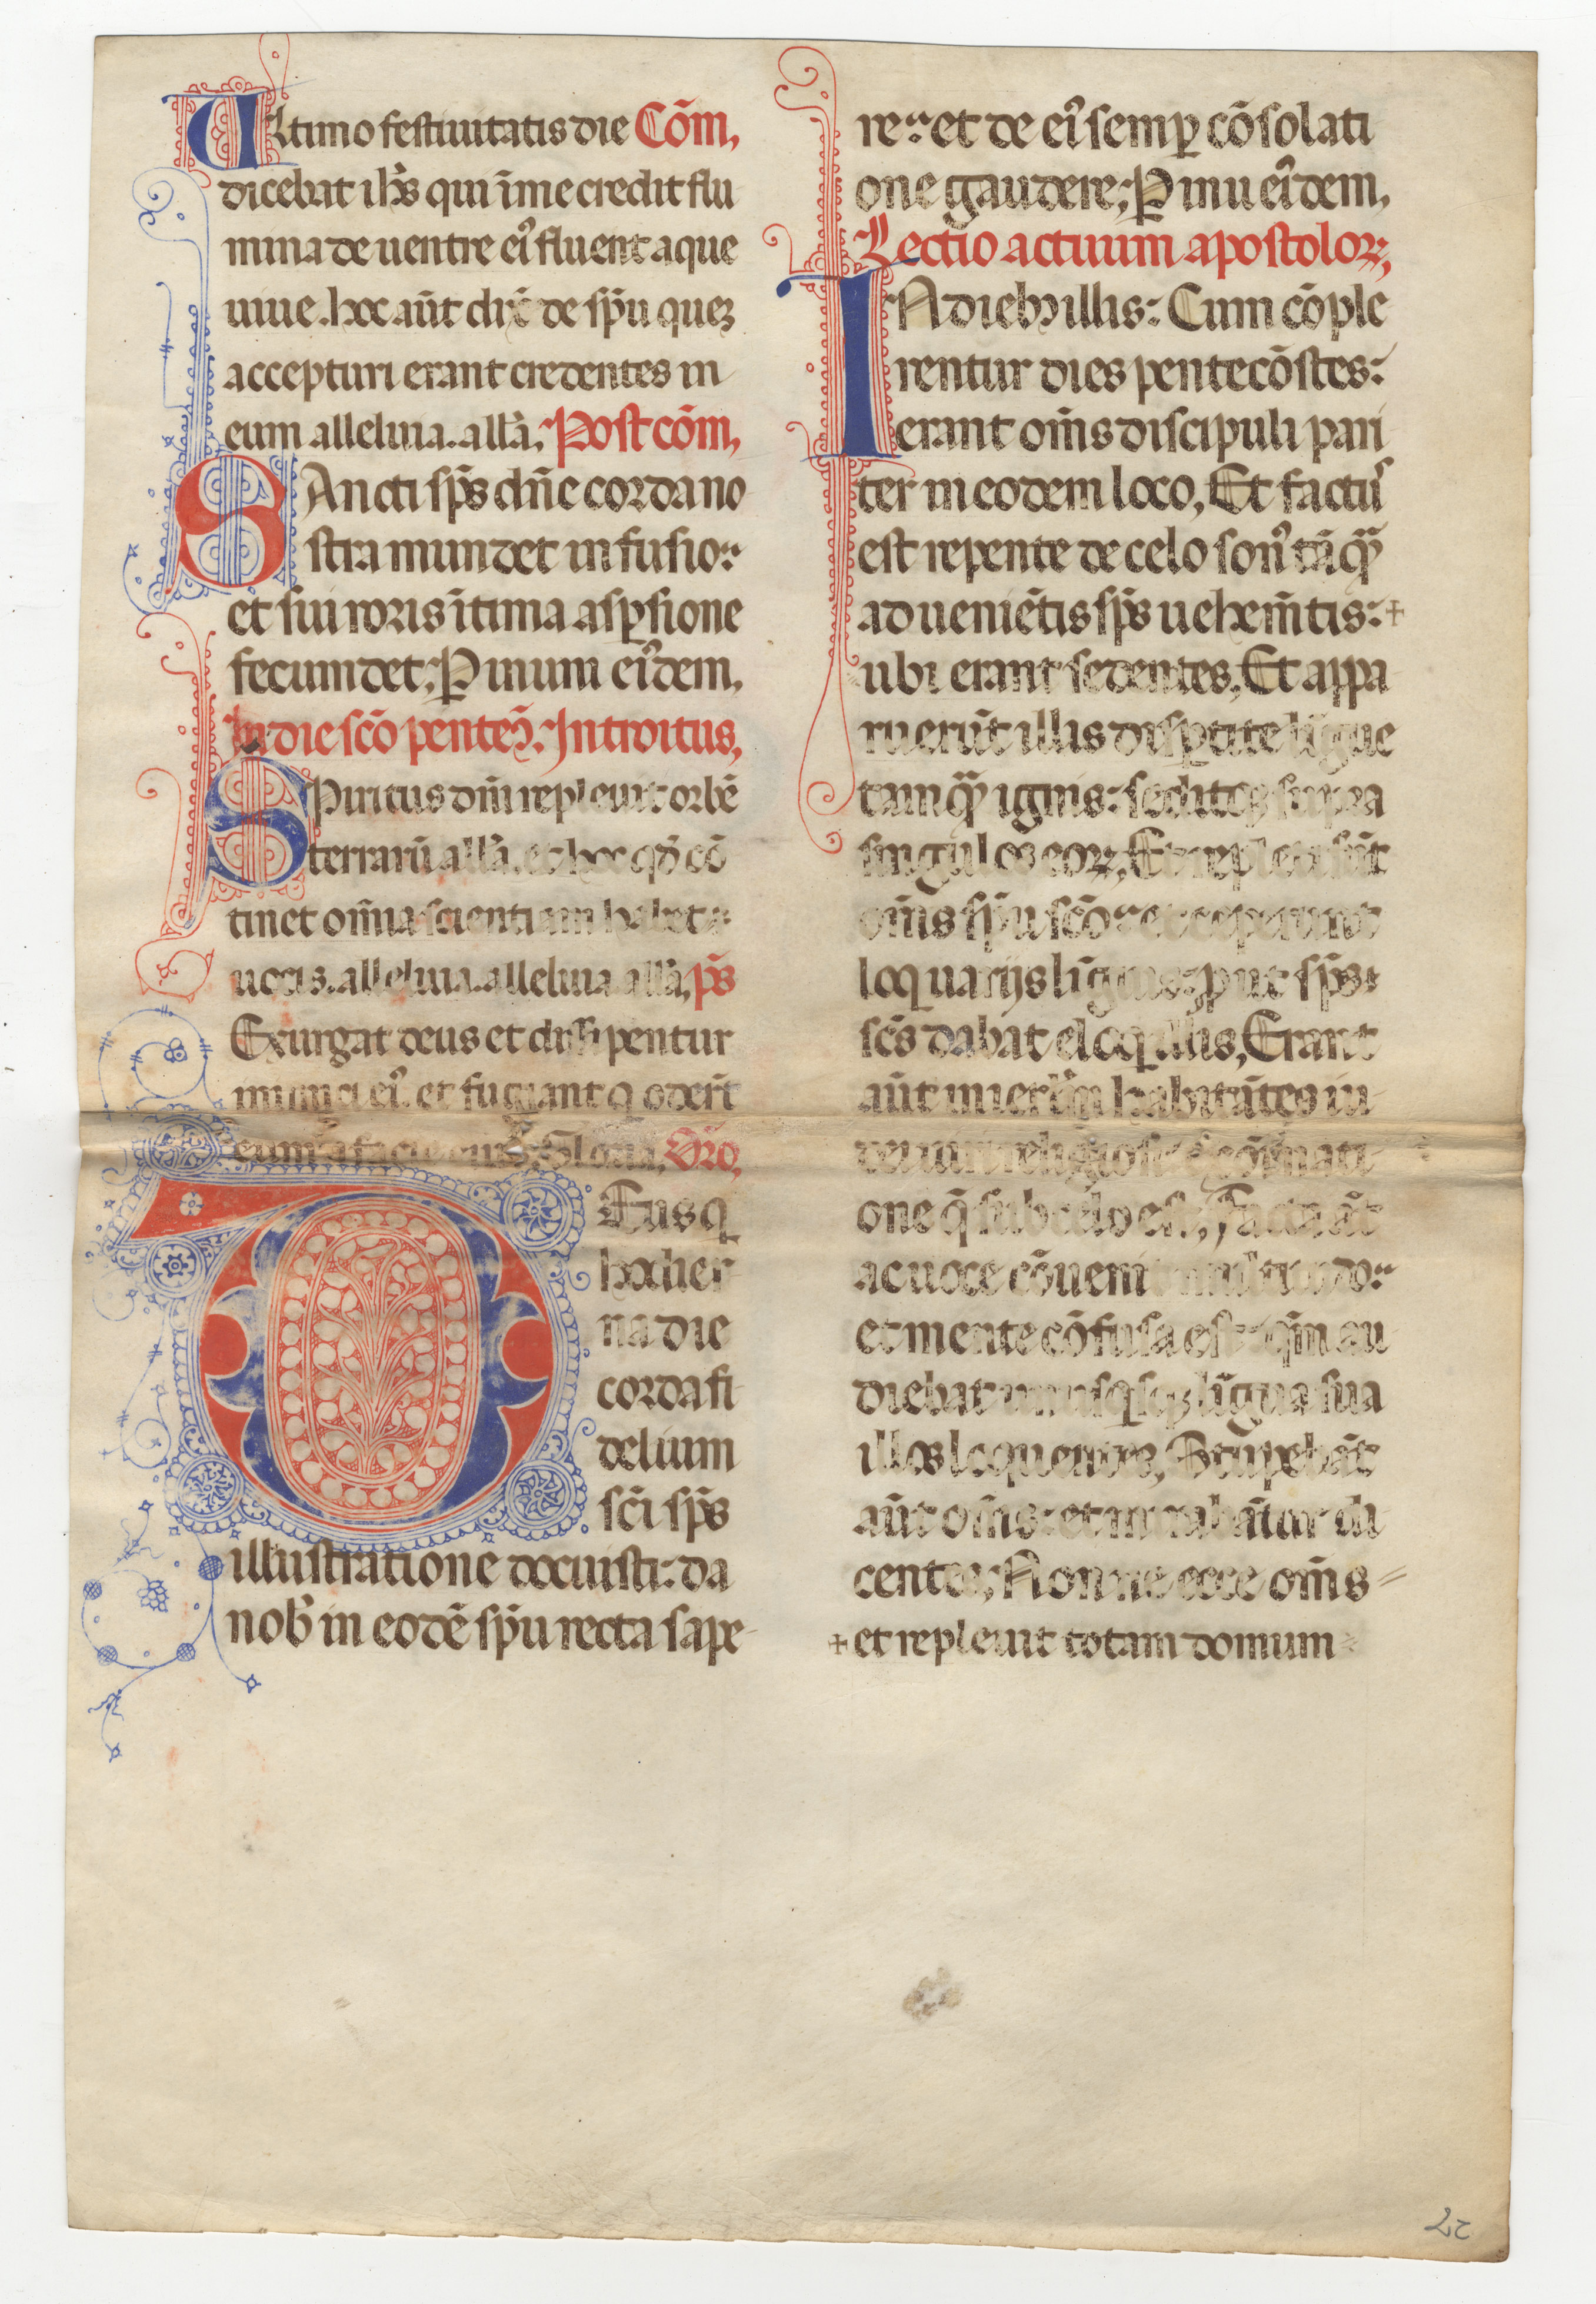 Ultimo festiuitatis die Cōm,
dicebat ih̄s qui ī me credit flu
mina de uentre ei᷒ fluent aque
uiue. hoc aūt dix̄ de sp̄u queꝫ
accepturi erant credentes in
eum alleluia. all̄a. Post cōm,
SAncti sp̄s dn̄e corda no
stra mundet infusio:
et sui roris ītima aspꝑsione
fecundet; P unum ei᷒dem,
In die scō penteꝯ. Introitus,
SPiritus dn̄i repleuit orbē
terrarū all̄a. et hoc qd̄ cō
tinet om̄ia scientiam habet:
uocis. alleluia. alleluia. all̄a, ps̄
Exurgat deus et dissipentur
inimici ei᷒. et fugiant q oder̄t
eum a facie eius; Gloria, Or̄o,
DEus q
hodier
na die
corda fi
delium
sc̄i sp̄s
illustratione docuisti: da
nob̄ in eodē sp̄u recta sape
re: et de ei᷒ semꝑ cōsolati
one gaudere; P unū ei᷒dem,
Lectio actuum apostoloꝝ,
IN diebꝫ illis: Cum cōple
rentur dies pentecōstes:
erant om̄s discipuli pari
ter in eodem loco, Et factus
est repente de celo son᷒ tāqᷓ
adueniētis sp̄s uehem̄tis: +
ubi erant sedentes, Et appa
ruerūt illis dispꝑtite līgue
tamqᷓ ignis: seditqꝫ supra
singulos eoꝝ, Et repleti sūt
om̄s sp̄u scō: et ceperunt
loqui uarijs līguis: ꝓut sp̄s
sc̄s dabat eloqi illis, Erant
aūt in ierlm̄ habitātes iu
dei uiri religiosi ex om̄i nati
one q̄ sub celo est, Facta āt
ac uoce cōuenit multitudo:
et mente cōfusa est: qm̄ au
diebat unusqisqꝫ līgua sua
illos loquentes, Stupebāt
aūt om̄s: et mirabātur di
centes; Nonne ecce om̄s
+ et repleuit totam domum